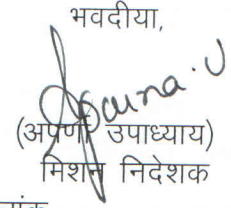 भवदीया,
Aparna.U
(अपर्णा उपाध्याय)
मिशन निदेशक